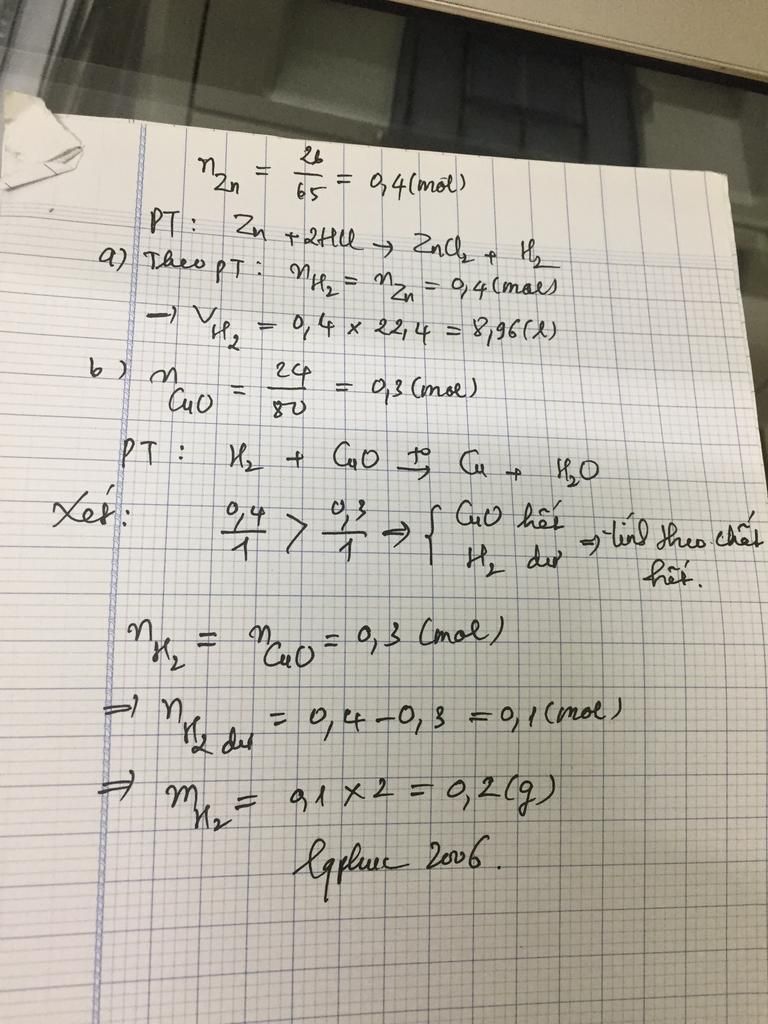 n_Zn = 26/65 = 0,4 (mol)
PT: Zn + 2HCl → ZnCl₂ + H₂
a) Theo PT: n_H₂ = n_Zn = 0,4 (mol)
→ V_H₂ = 0,4 × 22,4 = 8,96 (l)
b) n_CuO = 24/80 = 0,3 (mol)
PT: H₂ + CuO →(t°) Cu + H₂O
Xét: 0,4/1 > 0,3/1 ⇒ { CuO hết
H₂ dư ⇒ tính theo chất
hết.
n_H₂ = n_CuO = 0,3 (mol)
⇒ n_H₂ dư = 0,4 - 0,3 = 0,1 (mol)
⇒ m_H₂ = 0,1 × 2 = 0,2 (g)
2006.